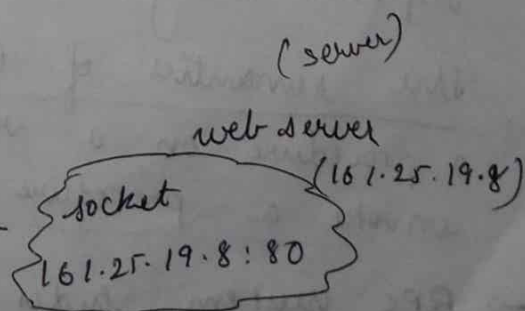 (server)
web server
(161.25.19.8)
socket
161.25.19.8:80